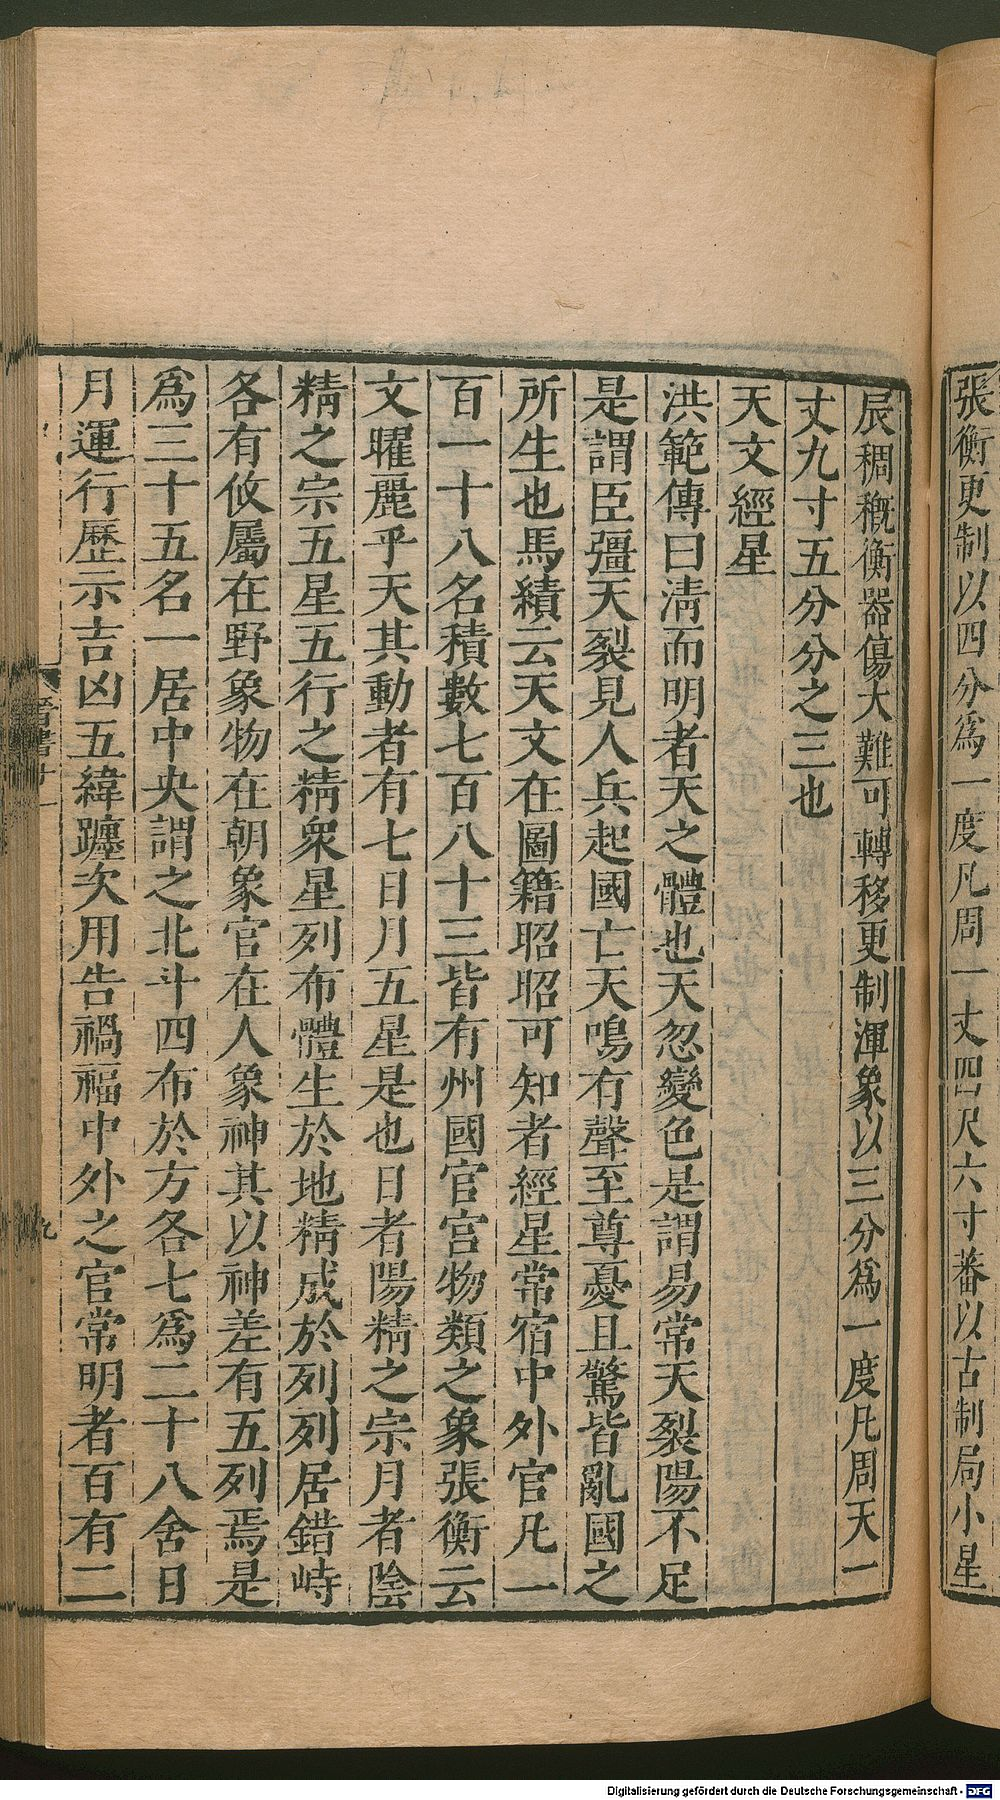 張衡更制以四分爲一度凡周一丈四尺六寸蕃以古制局小星
辰稠穊衡器傷大難可轉移更制渾象以三分爲一度凡周天一
丈九寸五分分之三也
天文經星
洪範傳曰淸而明者天之體也天忽變色是謂易常天裂陽不足
是謂臣彊天裂見人兵起國亡天鳴有聲至尊憂且驚皆亂國之
所生也馬績云天文在圖籍昭昭可知者經星常宿中外官凡一
百一十八名積數七百八十三皆有州國官宮物類之象張衡云
文曜麗乎天其動者有七日月五星是也日者陽精之宗月者陰
精之宗五星五行之精衆星列布體生於地精成於列列居錯峙
各有攸屬在野象物在朝象官在人象神其以神差有五列焉是
爲三十五名一居中央謂之北斗四布於方各七爲二十八舍日
月運行歷示吉凶五緯躔次用告禍福中外之官常明者百有二
晉書十一
九
Digitalisierung gefördert durch die Deutsche Forschungsgemeinschaft - DFG